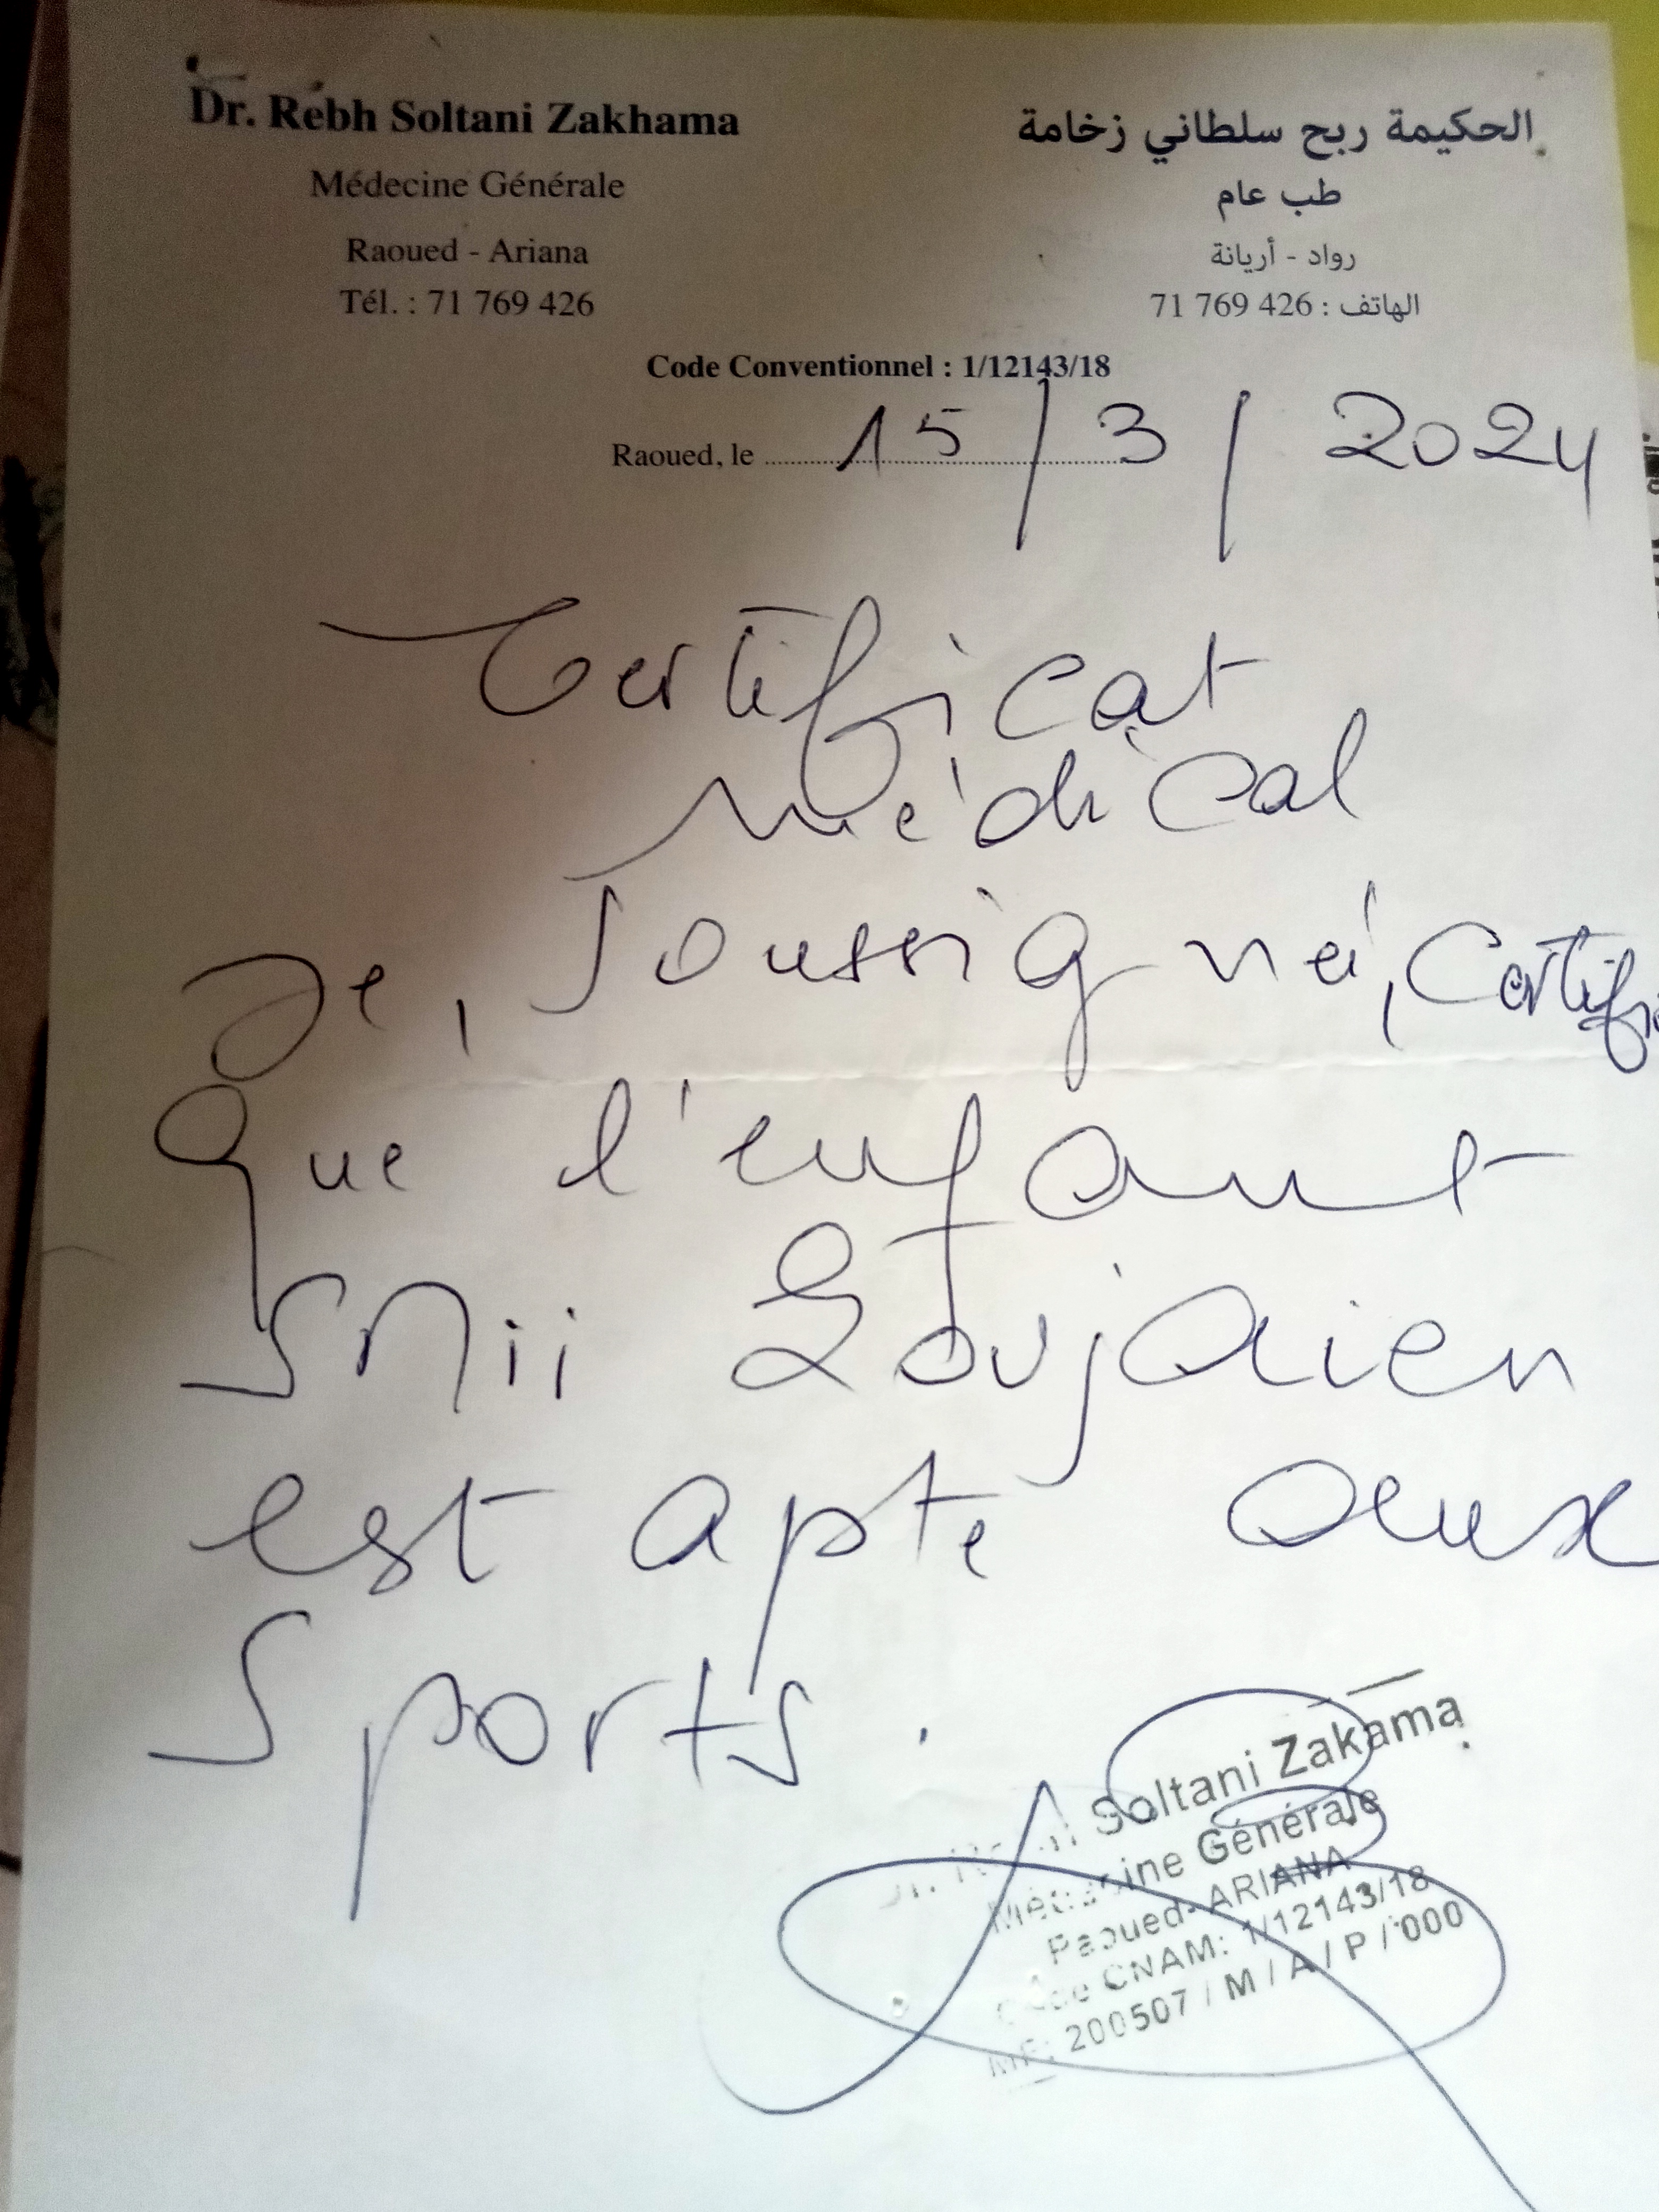 Dr. Rebh Soltani Zakhama
Médecine Générale
Raoued - Ariana
Tél. : 71 769 426
الحكيمة ربح سلطاني زخامة
طب عام
رواد - أريانة
الهاتف : 426 769 71
Code Conventionnel : 1/12143/18
Raoued, le 15/3/2024
Certificat
médical
Je, soussigné, Certifie
que l'enfant
Snii Loujaien
est apte aux
Sports.
Soltani Zakama
Médecine Générale
Raoued-ARIANA
Code CNAM: 1/12143/18
MF: 200507 / M / A / P / 000